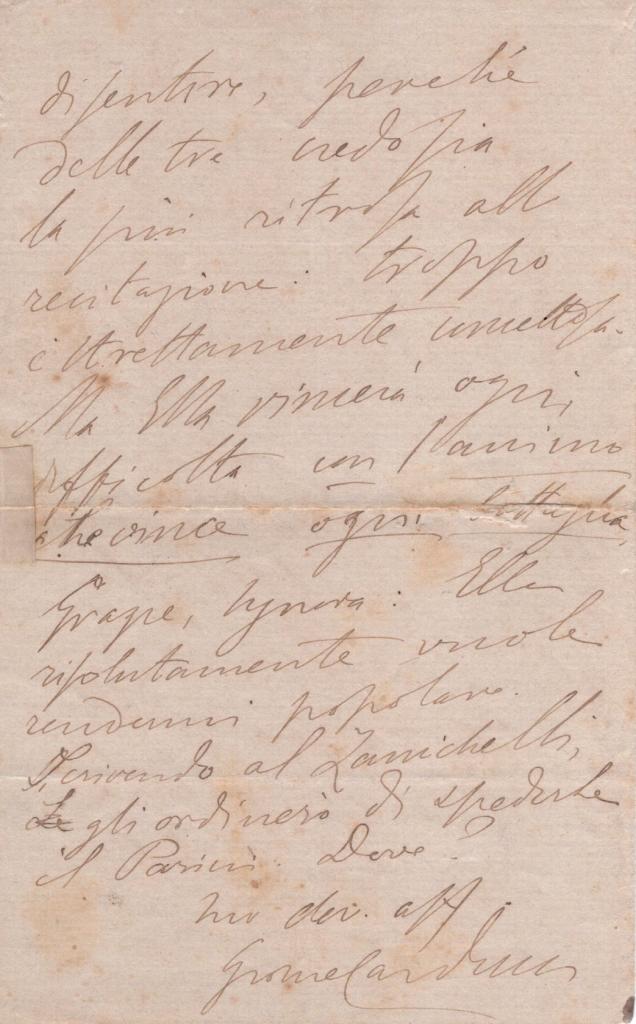 di sentire, perché
delle tre credo sia
la più ritrosa alla
recitazione: troppo
è strettamente concettosa.
Ma Ella vincerà ogni
difficoltà con l'animo
che vince ogni battaglia.
Grazie, Signora: Ella
risolutamente vuole
rendermi popolare.
Scrivendo al Zanichelli,
Le gli ordinerò di spedirle
il Parini. Dove?
suo dev. aff
Giosue Carducci